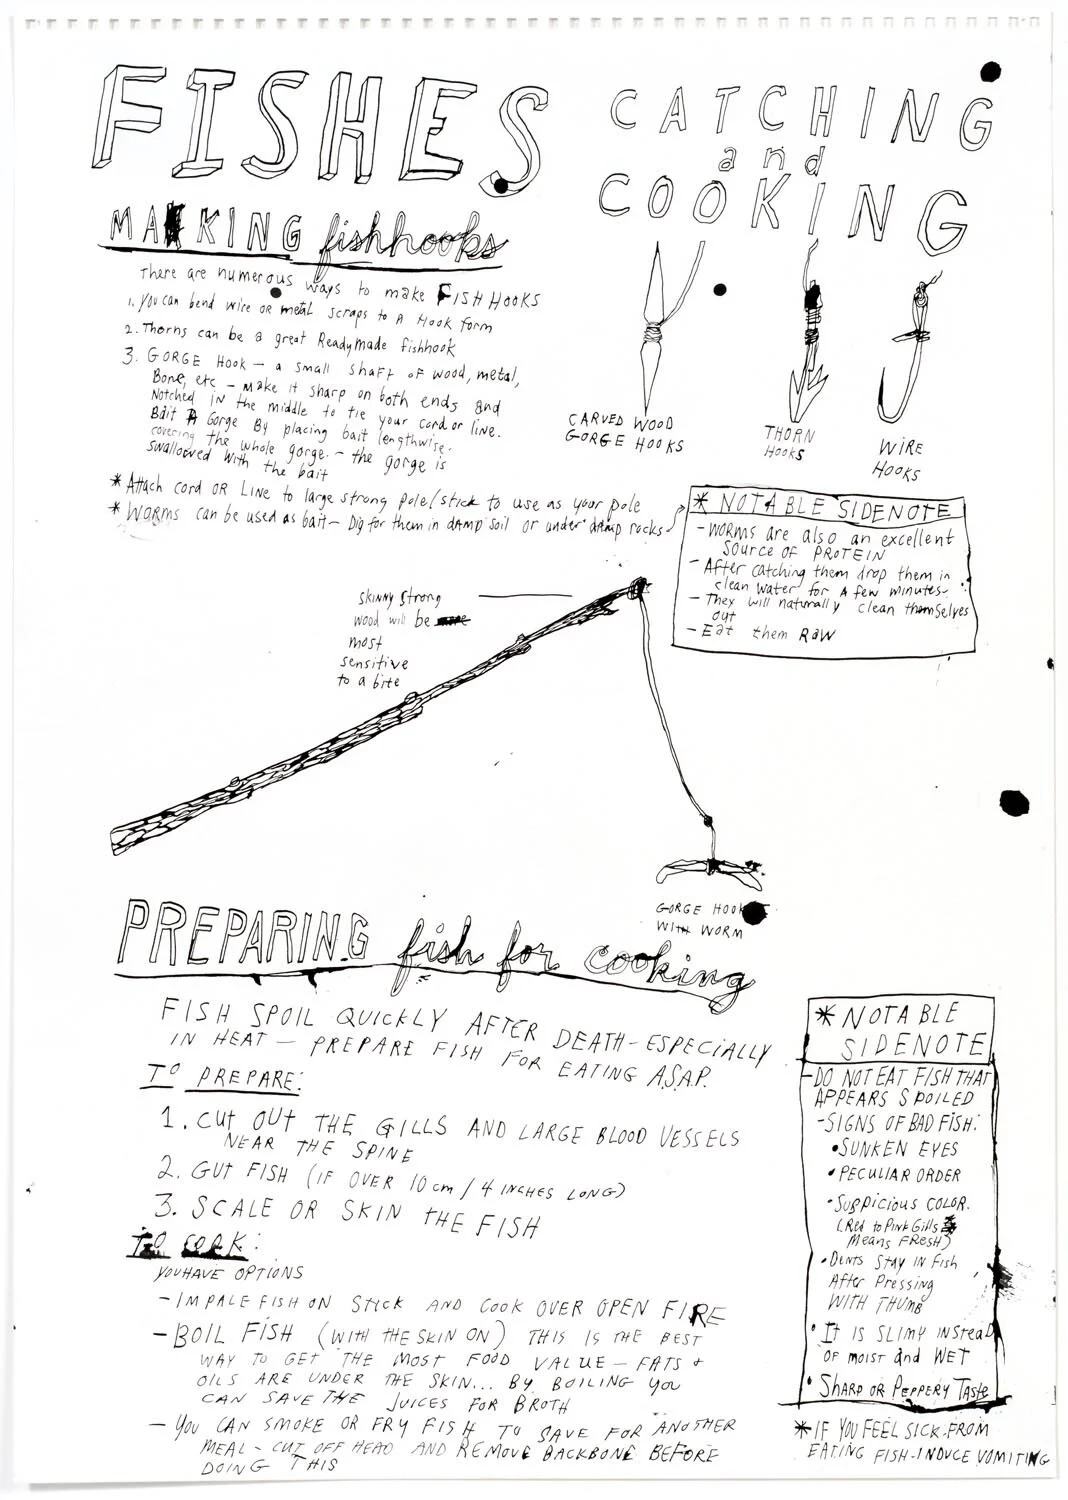 FISHES
CATCHING
and
COOKING
MAKING fishhooks
There are numerous ways to make FISH HOOKS
1. You can bend wire or metal scraps to a Hook form
2. Thorns can be a great Readymade fishhook
3. GORGE HOOK – a small shaft of wood, metal,
Bone, etc – make it sharp on both ends and
Notched in the middle to tie your cord or line.
Bait A Gorge By placing bait lengthwise.
covering the whole gorge. – the gorge is
swallowed with the bait
* Attach cord OR Line to large strong pole/stick to use as your pole
* WORMS can be used as bait – Dig for them in damp soil or under damp rocks
CARVED WOOD
GORGE HOOKS
THORN
HOOKS
WIRE
HOOKS
* NOTABLE SIDENOTE
– WORMS are also an excellent
Source OF PROTEIN
– After catching them drop them in
clean water for a few minutes.
– They will naturally clean themselves
out
– Eat them RAW
skinny strong
wood will be
most
sensitive
to a bite
GORGE HOOK
WITH WORM
PREPARING fish for cooking
FISH SPOIL QUICKLY AFTER DEATH – ESPECIALLY
IN HEAT – PREPARE FISH FOR EATING A.S.A.P.
TO PREPARE:
1. CUT OUT THE GILLS AND LARGE BLOOD VESSELS
NEAR THE SPINE
2. GUT FISH (IF OVER 10 cm / 4 INCHES LONG)
3. SCALE OR SKIN THE FISH
TO COOK:
YOU HAVE OPTIONS
– IMPALE FISH ON STICK AND COOK OVER OPEN FIRE
– BOIL FISH (WITH THE SKIN ON) THIS IS THE BEST
WAY TO GET THE MOST FOOD VALUE – FATS +
OILS ARE UNDER THE SKIN... BY BOILING YOU
CAN SAVE THE JUICES FOR BROTH
– YOU CAN SMOKE OR FRY FISH TO SAVE FOR ANOTHER
MEAL – CUT OFF HEAD AND REMOVE BACKBONE BEFORE
DOING THIS
* NOTABLE
SIDENOTE
– DO NOT EAT FISH THAT
APPEARS SPOILED
– SIGNS OF BAD FISH:
• SUNKEN EYES
• PECULIAR ORDER
• Suspicious COLOR.
(Red to Pink Gills
Means FRESH)
• Dents Stay in Fish
After Pressing
WITH THUMB
• It IS SLIMY INSTEAD
OF MOIST and WET
• SHARP OR PEPPERY TASTE
* IF YOU FEEL SICK FROM
EATING FISH – INDUCE VOMITING